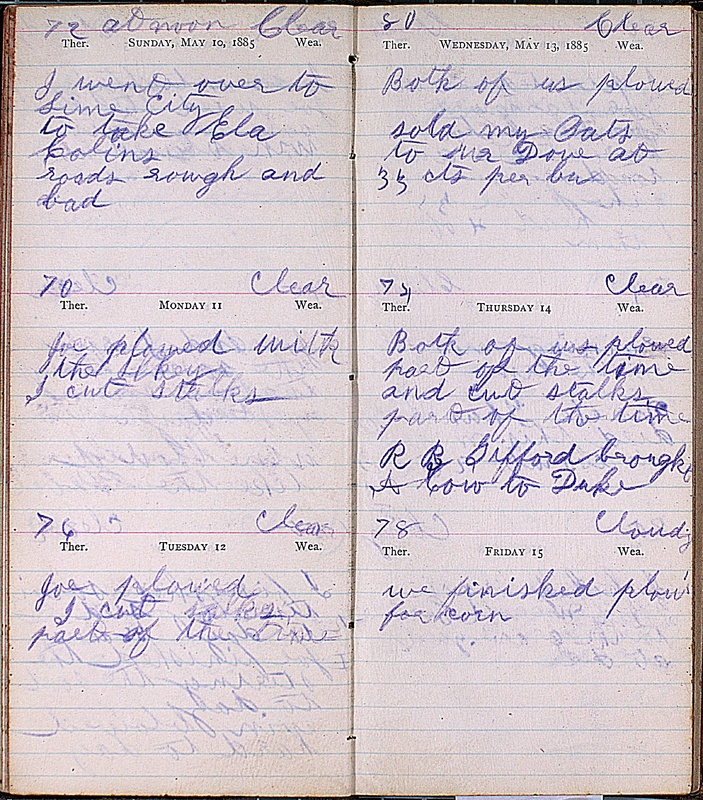 72 at noon Clear
Ther. SUNDAY, MAY 10, 1885 Wea.
I went over to
Lime City
to take Ela
Colins
roads rough and
bad
70 Clear
Ther. MONDAY 11 Wea.
Joe plowed with
the sulkey
I cut stalks
76 Clear
Ther. TUESDAY 12 Wea.
Joe plowed
I cut stalks
part of the time
80 Clear
Ther. WEDNESDAY, MAY 13, 1885 Wea.
Both of us plowed
sold my Oats
to mr Dove at
33 cts per bu
74 Clear
Ther. THURSDAY 14 Wea.
Both of us plowed
part of the time
and cut stalks
part of the time
R R Gifford brought
A Cow to Duke
78 Cloudy
Ther. FRIDAY 15 Wea.
we finished plow
for corn